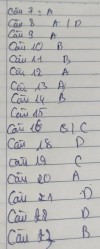 Câu 7 : A
Câu 8 A / D
Câu 9 A
Câu 10 B
Câu 11 B
Câu 12 A
Câu 13 A
Câu 14 B
Câu 15
Câu 16 B / C
Câu 18 D
Câu 19 C
Câu 20 A
Câu 21 D
Câu 22 D
Câu 23 B